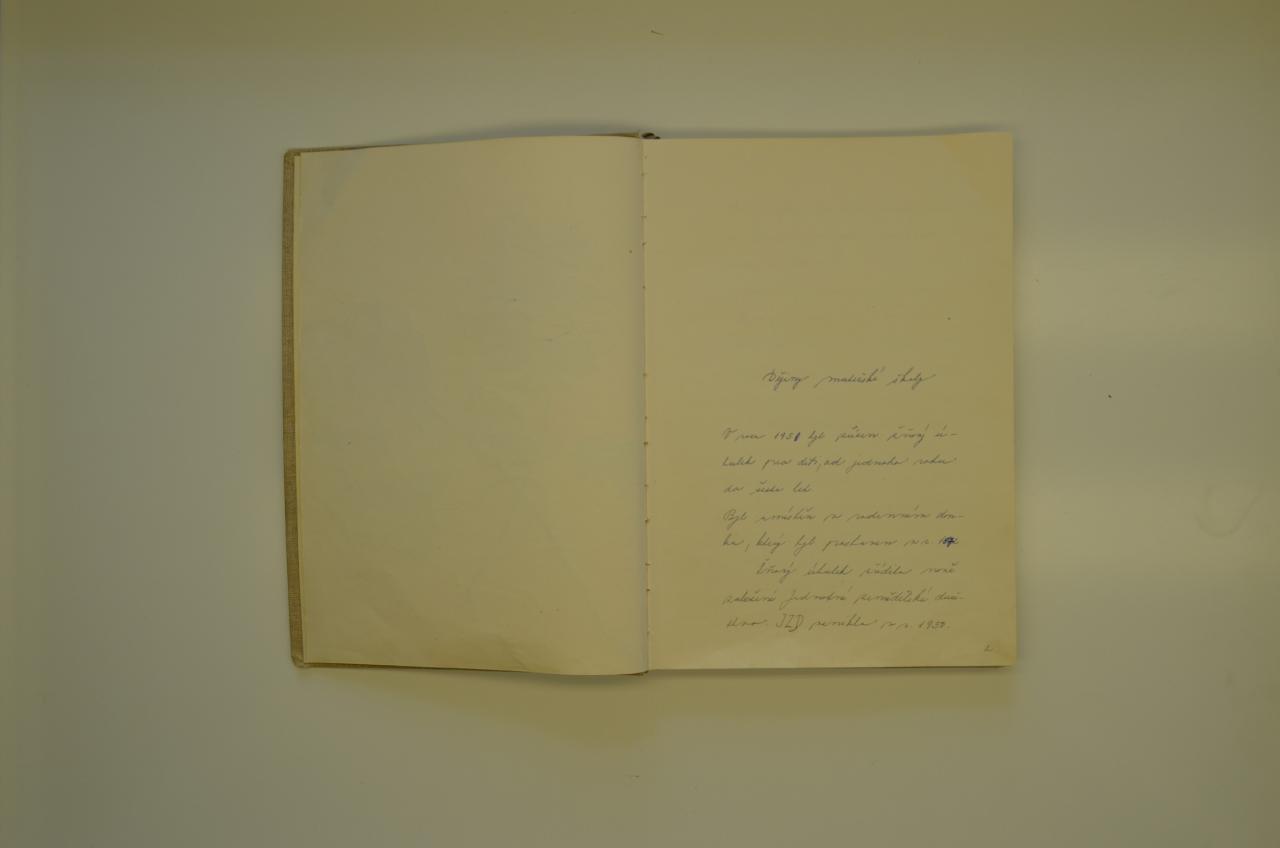 Dějiny mateřské školy
V roce 1951 byl zřízen žňový ú-
tulek pro děti, od jednoho roku
do šesti let.
Byl umístěn v rodinném dom-
ku, který byl postaven v r.
Žňový útulek zřídilo nově
založené Jednotné zemědělské druž-
stvo. JZD vzniklo v r. 1950.